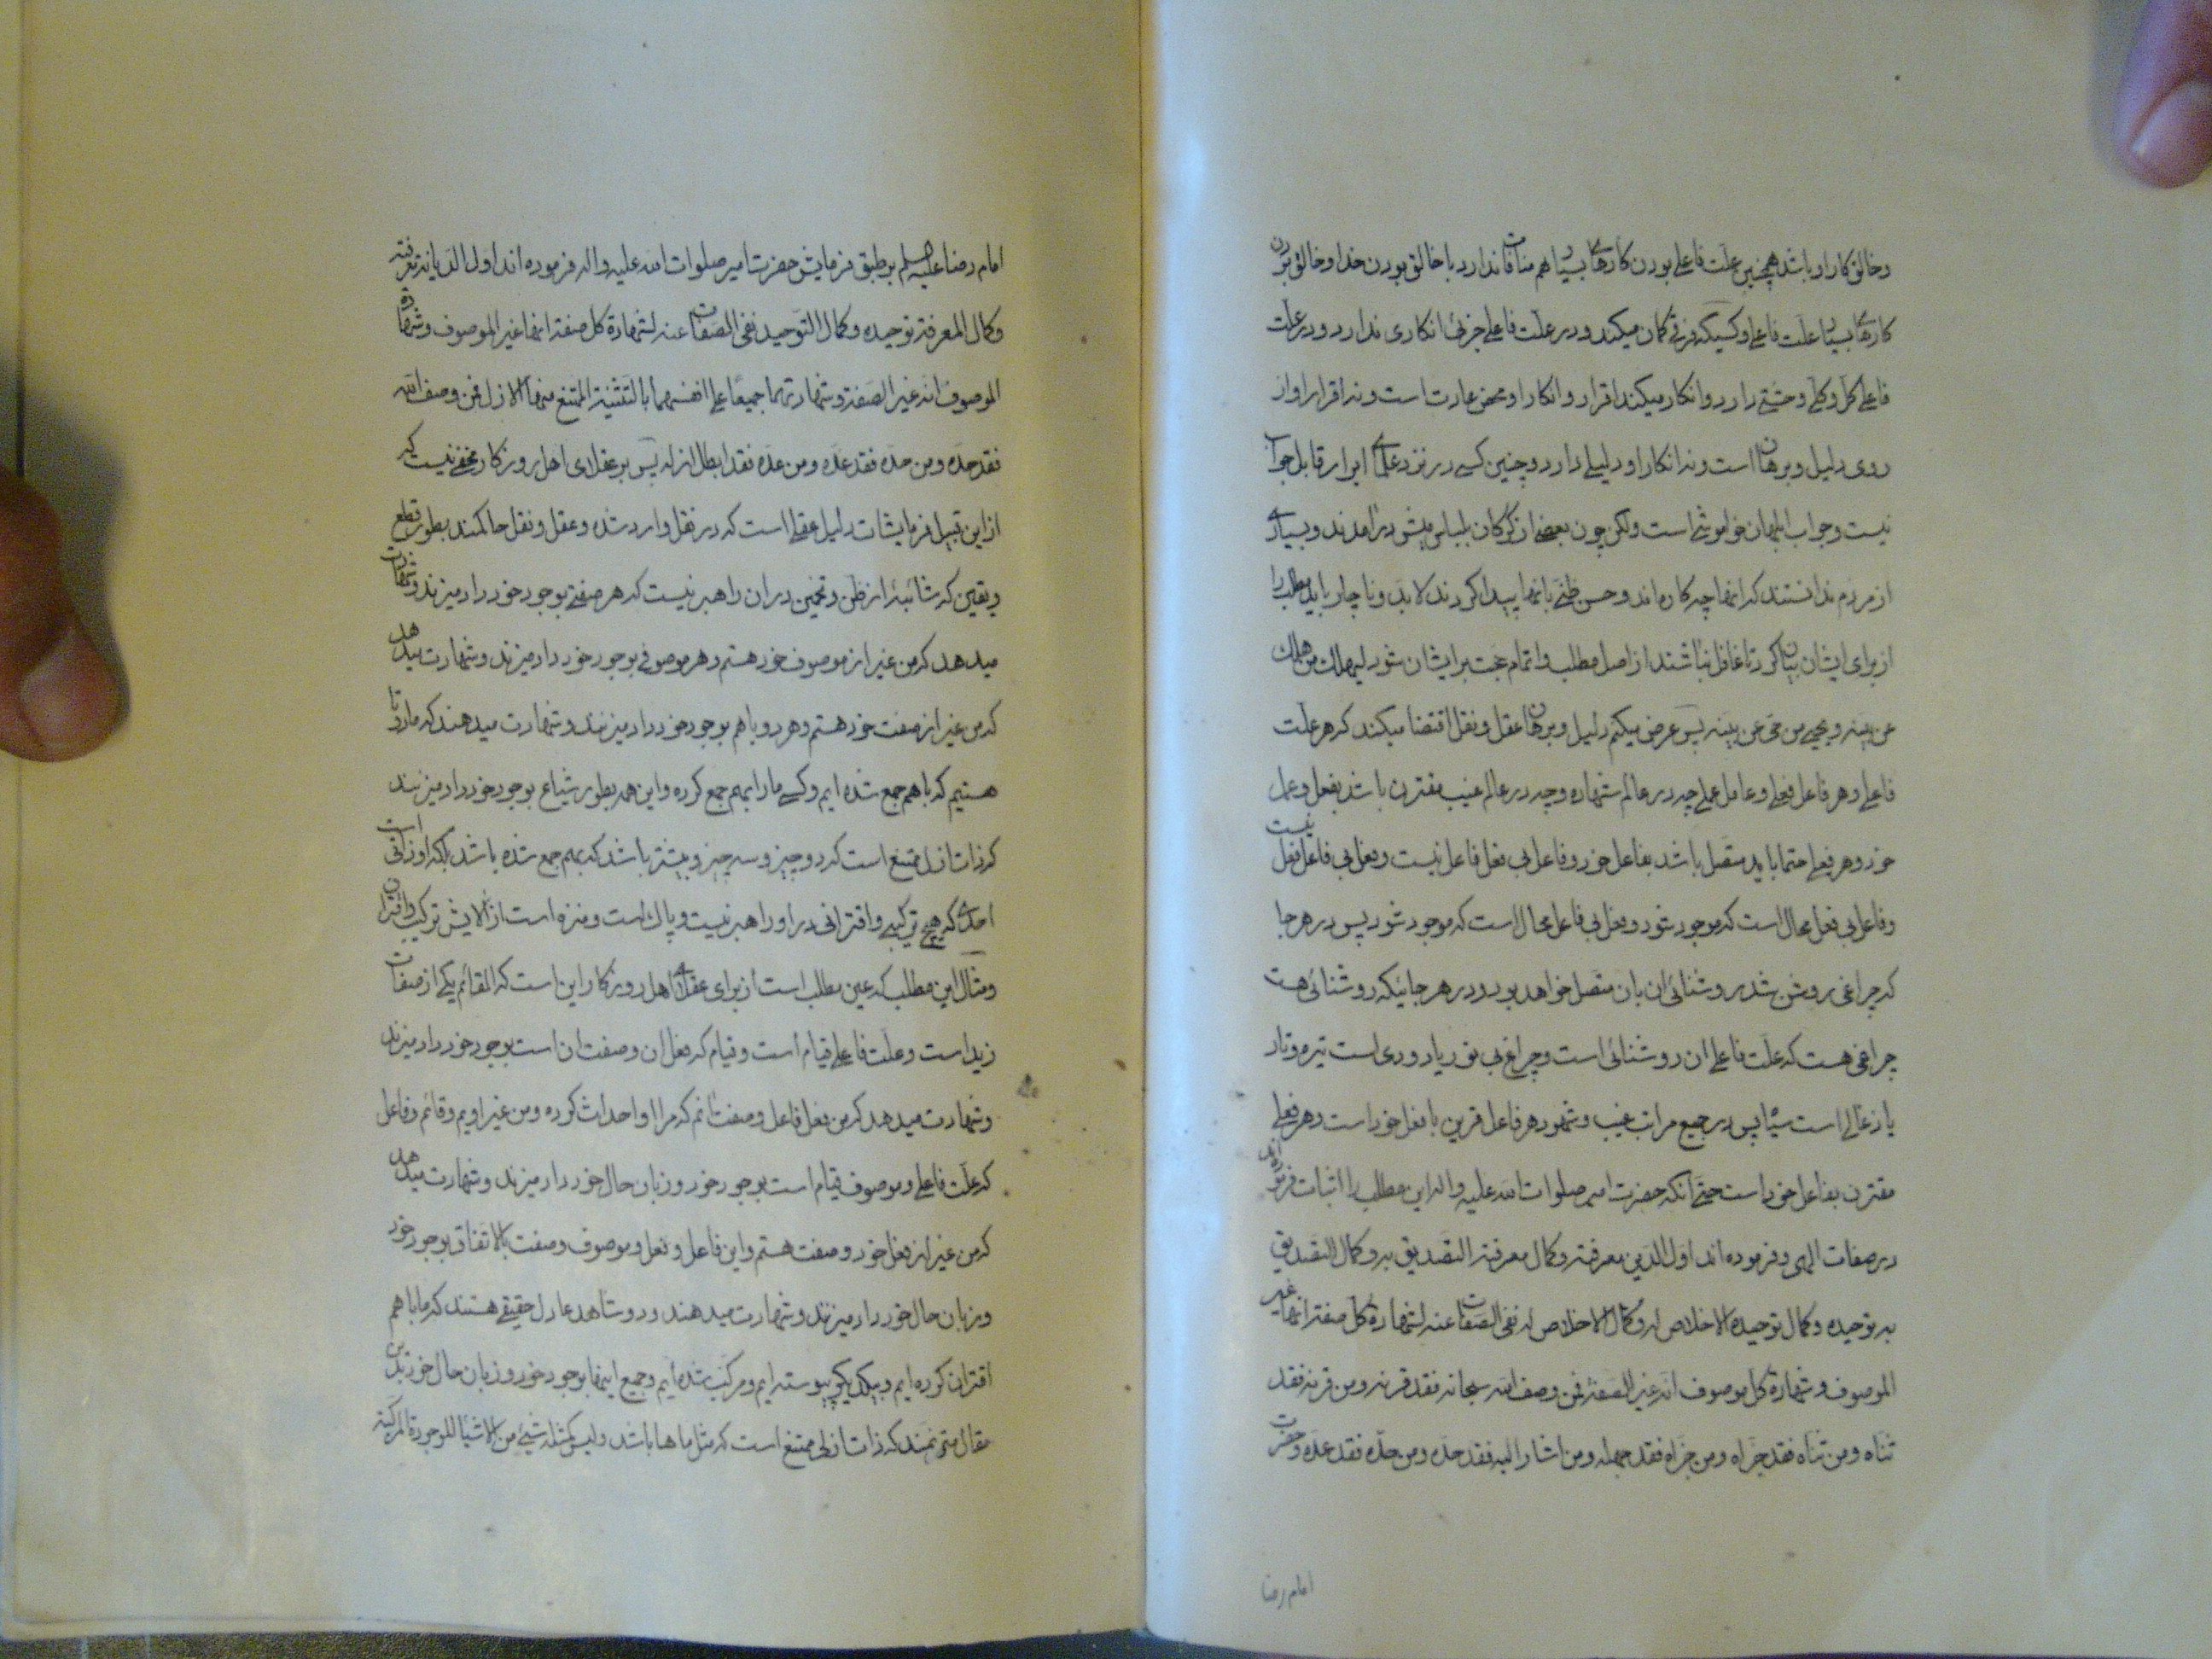 و خالق کار او باشد همچنین علت فاعلی بودن کارهای بسیار هم منافات ندارد با خالق بودن خدا و خالق بودن
کارهای بسیار علت فاعلی و کسیکه فرقی گمان میکند و در علت فاعلی جزئی انکاری ندارد و در علت
فاعلی کل و کلی وحشتی دارد و انکار میکند اقرار و انکار او محض عادت است و نه اقرار او از
روی دلیل و برهان است و نه انکار او دلیلی دارد و چنین کسی در نزد علمای ابرار قابل جواب
نیست و جواب ابلهان خاموشی است ولکن چون بعضی از گرگان بلباس میش درآمدند و بسیاری
از مردم ندانستند که آنها چه کاره اند و حسن ظنی بآنها پیدا کردند لابد و ناچار باید مطلب را
از برای ایشان بیان کرد تا غافل نباشند از اصل مطلب و اتمام حجت بر ایشان شود لیهلک من هلک
عن بینه و یحیی من حی عن بینه پس عرض میکنم دلیل و برهان عقل و نقل اقتضا میکند که هر علت
فاعلی و هر فاعل فعلی و عامل عملی چه در عالم شهاده و چه در عالم غیب مقترن باشد بفعل و عمل
خود و هر فعلی حتما باید متصل باشد بفاعل خود و فاعل بی فعل فاعل نیست و فعل بی فاعل فعل نیست
و فاعل بی فعل محال است که موجود شود و فعل بی فاعل محال است که موجود شود پس در هر جا
که چراغی روشن شد روشنائی آن بآن متصل خواهد بود و در هر جائیکه روشنائی هست
چراغی هست که علت فاعلی آن روشنائی است و چراغ بی نور یا دودی است تیره و تار
یا ذغالی است سیاه پس در جمیع مراتب غیب و شهود هر فاعل قرین با فعل خود است و هر فعلی
مقترن بفاعل خود است حتی آنکه حضرت امیر صلوات الله علیه و اله این مطلب را اثبات فرموده اند
در صفات الهی و فرموده اند اول الدین معرفته و کمال معرفته التصدیق به و کمال التصدیق
به توحیده و کمال توحیده الاخلاص له و کمال الاخلاص له نفی الصفات عنه لشهادة کل صفة انها غیر
الموصوف و شهادة کل موصوف انه غیر الصفة فمن وصف الله سبحانه فقد قرنه و من قرنه فقد
ثناه و من ثناه فقد جزاه و من جزاه فقد جهله و من اشار الیه فقد حده و من حده فقد عده و حضرت
امام رضا
امام رضا علیه السلم بر طبق فرمایش حضرت امیر صلوات الله علیه و اله فرموده اند اول الدیانة معرفته
و کمال المعرفة توحیده و کمال التوحید نفی الصفات عنه لشهادة کل صفة انها غیر الموصوف و شهادة
الموصوف انه غیر الصفة و شهادتهما جمیعًا علی انفسهما بالتثنیة الممتنع منها الازل فمن وصف الله
فقد حده و من حده فقد عده و من عده فقد ابطل ازله پس بر عقلای اهل روزگار مخفی نیست که
از این قبیل فرمایشات دلیل عقلی است که در نقل وارد شده و عقل و نقل حاکمند بطور قطع
و یقین که شائبهٔ از ظن و تخمین در آن راهبر نیست که هر صفتی بوجود خود داد میزند و شهادت
میدهد که من غیر از موصوف خود هستم و هر موصوفی بوجود خود داد میزند و شهادت میدهد
که من غیر از صفت خود هستم و هر دو با هم بوجود خود داد میزنند و شهادت میدهند که ما دو تا
هستیم که با هم جمع شده ایم و کسی ما را بهم جمع کرده و این همه بطور شیاع بوجود خود داد میزنند
که ذات ازل ممتنع است که دو چیز و سه چیز و بیشتر باشد که بهم جمع شده باشد بلکه او ذاتی است
احدی که هیچ ترکیبی و اقترانی در او راهبر نیست و پاک است و منزه است از آلایش ترکیب و اقتران
و مثال این مطلب که عین مطلب است از برای عقلای اهل روزگار این است که القائم یکی از صفات
زید است و علت فاعلی قیام است و قیام که فعل آن و صفت آن است بوجود خود داد میزند
و شهادت میدهد که من فعل فاعل و صفت آنم که مرا او احداث کرده و من غیر اویم و قائم و فاعل
که علت فاعلی و موصوف قیام است بوجود خود و زبان حال خود داد میزند و شهادت میدهد
که من غیر از فعل خود و صفت هستم و این فاعل و فعل و موصوف و صفت بالاتفاق بوجود خود
و زبان حال خود داد میزنند و شهادت میدهند و دو شاهد عادل حقیقی هستند که ما با هم
اقتران کرده ایم و بیکدیگر پیوسته ایم و مرکب شده ایم و جمیع اینها بوجود خود و زبان حال خود بدین
مقال مترنمند که ذات ازلی ممتنع است که مثل ماها باشد و لیس کمثله شیئ من الاشیاء الموجودة المرکبة